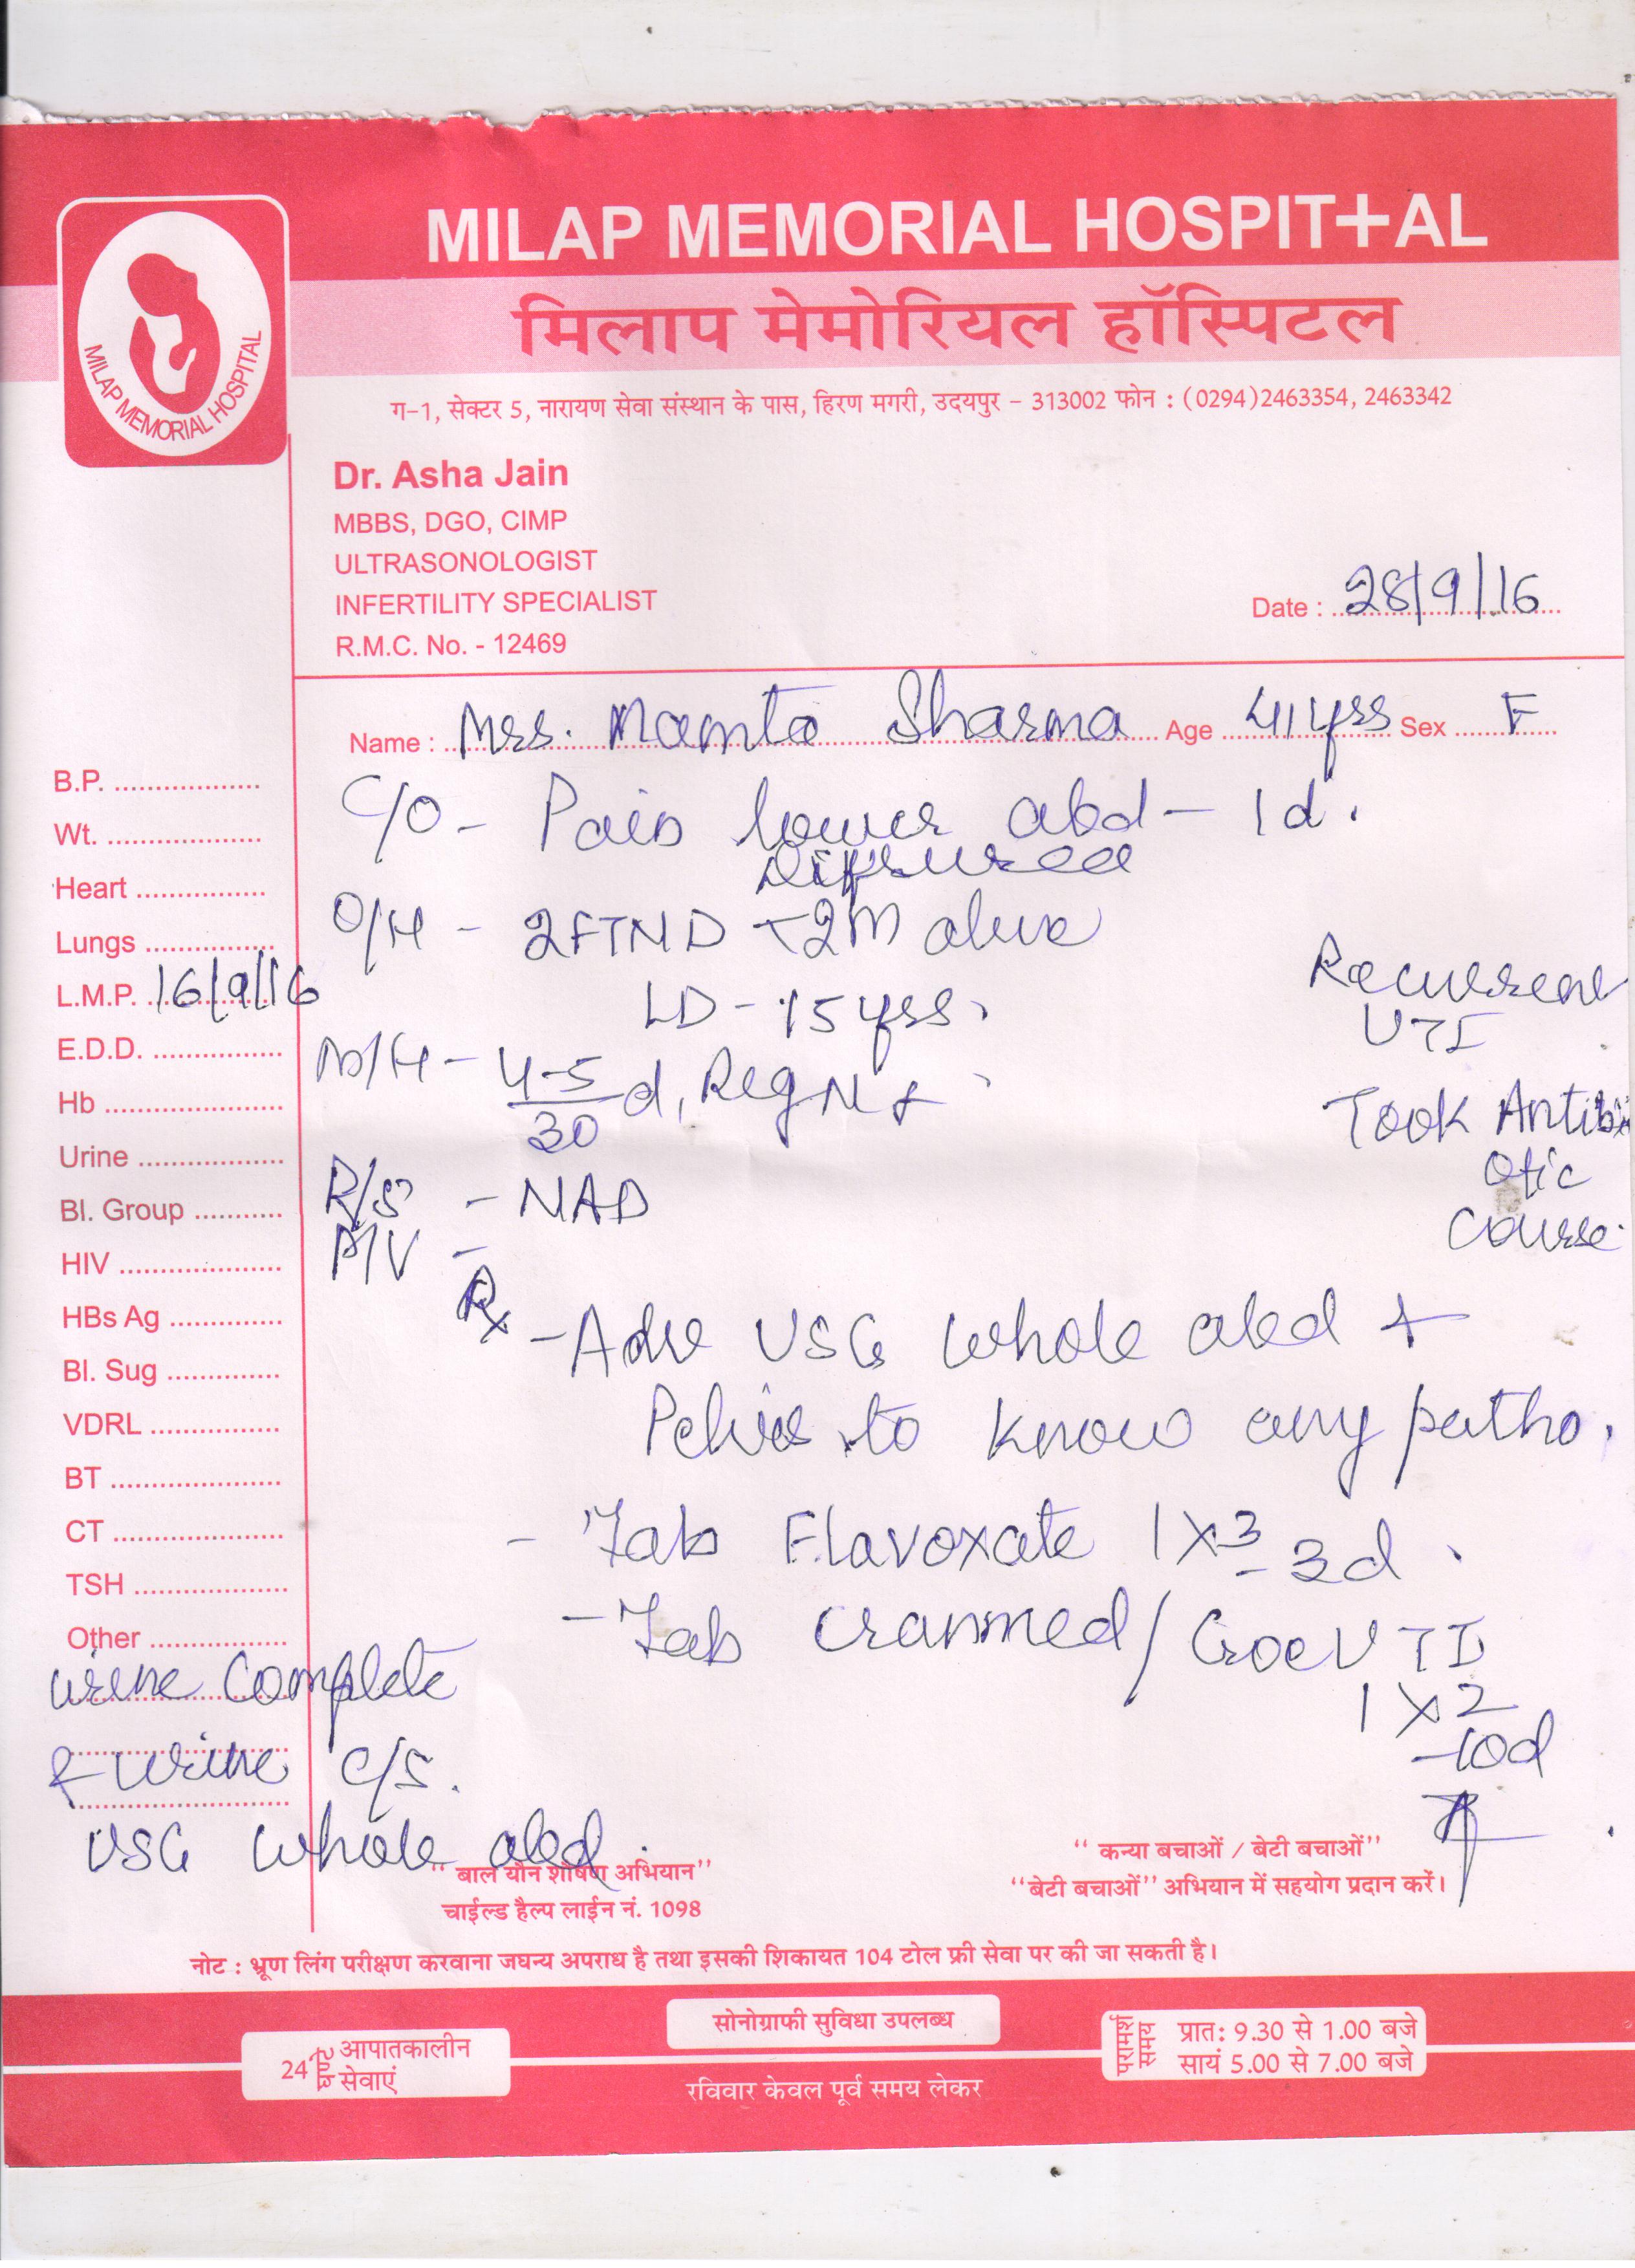 MILAP MEMORIAL HOSPITAL
मिलाप मेमोरियल हॉस्पिटल
MILAP MEMORIAL HOSPITAL
ग-1, सेक्टर 5, नारायण सेवा संस्थान के पास, हिरण मगरी, उदयपुर - 313002 फोन : (0294)2463354, 2463342
Dr. Asha Jain
MBBS, DGO, CIMP
ULTRASONOLOGIST
INFERTILITY SPECIALIST
R.M.C. No. - 12469
Date : 28/9/16
Name : Mrs. Mamta Sharma Age 41 yrs Sex F
B.P.
Wt.
Heart
Lungs
L.M.P. 16/9/16
E.D.D.
Hb
Urine
Bl. Group
HIV
HBs Ag
Bl. Sug
VDRL
BT
CT
TSH
Other
Urine Complete
& Urine C/S.
USG Whole abd.
C/O - Pain lower abd - 1d.
O/H - 2FTND - 2M alive
LD - 15 yrs.
M/H - 4-5/30 d, Reg N
Recurrent
UTI
Took Antibi
otic
Course.
P/S - NAD
P/V -
Rx
- Adv USG Whole abd +
Pelvis to know any patho.
- Tab Flavoxate 1x3 - 3d.
- Tab Cranmed /
1 x 2
- 10d
" बाल यौन शोषण अभियान"
चाईल्ड हैल्प लाईन नं. 1098
" कन्या बचाओं / बेटी बचाओं"
"बेटी बचाओं" अभियान में सहयोग प्रदान करें।
नोट : भ्रूण लिंग परीक्षण करवाना जघन्य अपराध है तथा इसकी शिकायत 104 टोल फ्री सेवा पर की जा सकती है।
24 घंटे आपातकालीन
सेवाएं
सोनोग्राफी सुविधा उपलब्ध
रविवार केवल पूर्व समय लेकर
परामर्श समय
प्रात: 9.30 से 1.00 बजे
सायं 5.00 से 7.00 बजे